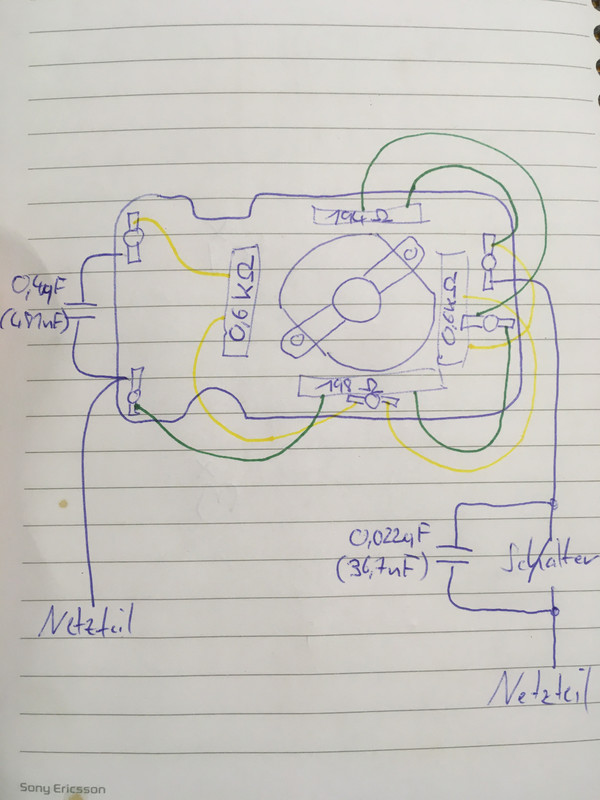 194 Ω
0,4µF
(481nF)
0,6 kΩ
0,6 kΩ
198 Ω
0,022µF
(36,7nF)
Schalter
Netzteil
Netzteil
Sony Ericsson